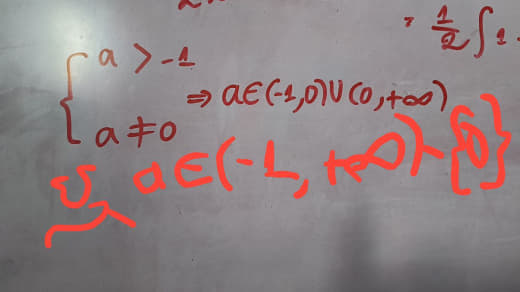 , 1/2 ∫ 1
{ a > -1
a ≠ 0
⇒ a∈(-1,0)∪(0,+∞)
یا a∈(-1,+∞)-{0}